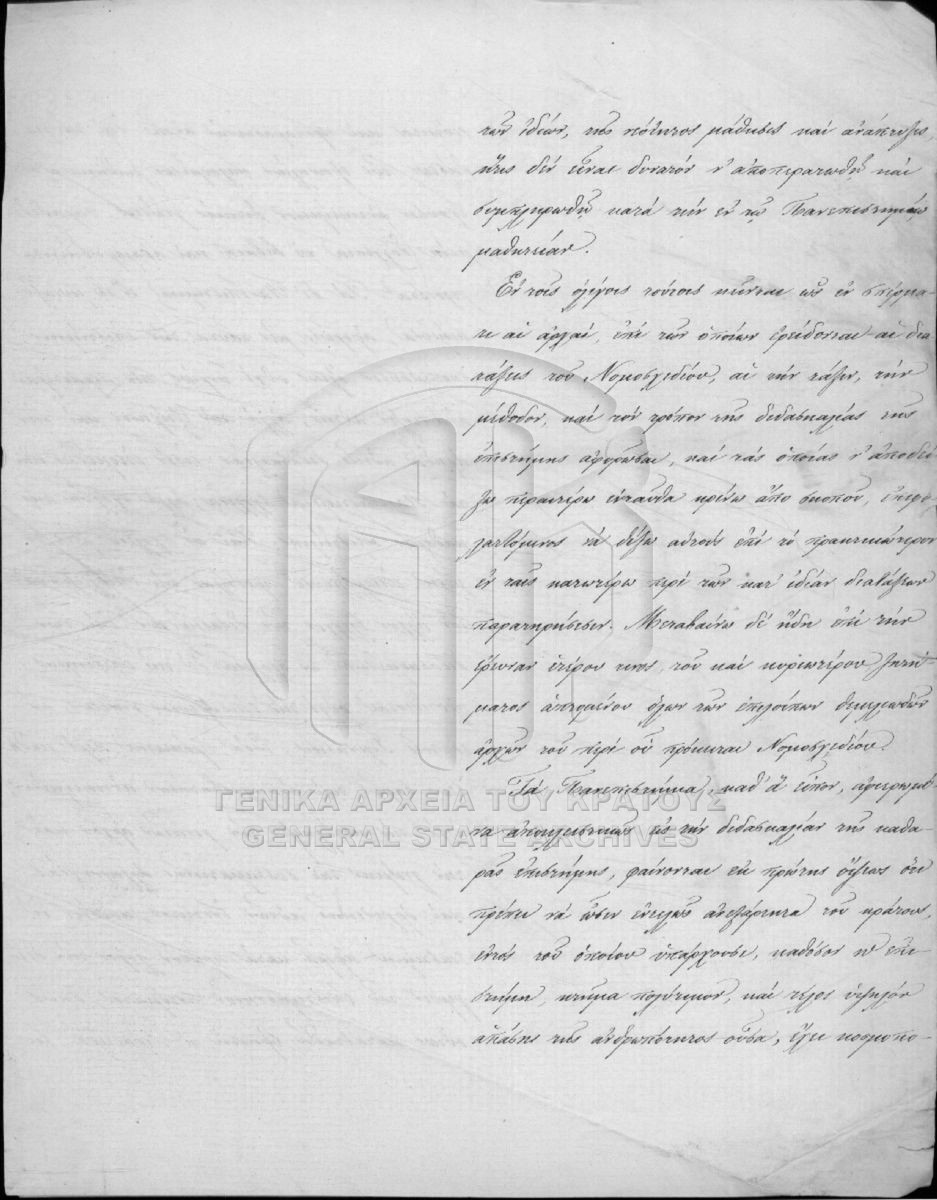 τῶν ἰδεῶν, τῆς νεότητος μάθησις καὶ ἀνάπτυξις,
ἥτις δὲν εἶναι δυνατὸν ν' ἀποπερατωθῇ καὶ
συμπληρωθῇ κατὰ τὴν ἐν τῷ Πανεπιστημίῳ
μαθητείαν.
Ἐν τοῖς ὀλίγοις τούτοις κεῖνται ὡς ἐν σπέρμα-
τι αἱ ἀρχαὶ, ἐπὶ τῶν ὁποίων ἐρείδονται αἱ δια-
τάξεις τοῦ Νομοσχεδίου, αἱ τὴν τάξιν, τὴν
μέθοδον, καὶ τὸν τρόπον τῆς διδασκαλίας τῆς
ἐπιστήμης ἀφορῶσαι, καὶ τὰς ὁποίας ν' ἀποδεί-
ξω περαιτέρω ἐνταῦθα κρίνω ἀπὸ σκοποῦ, ἐπιφυ-
λαττόμενος νὰ δείξω αὐτοὺς ἐπὶ τὸ πρακτικώτερον
ἐν ταῖς κατωτέρω περὶ τῶν κατ' ἰδίαν διατάξεων
παρατηρήσεσιν. Μεταβαίνω δὲ ἤδη ἐπὶ τὴν
ἔρευναν ἑτέρου τινος, τοῦ καὶ κυριωτέρου ζητή-
ματος ἁπτομένου ὅλων τῶν ἐπιλοίπων θεμελιωδῶν
ἀρχῶν τοῦ περὶ οὗ πρόκειται Νομοσχεδίου.
Τὰ Πανεπιστήμια, καθ' ἃ εἶπον, ἀφιερωμέ-
να ἀποκλειστικῶς εἰς τὴν διδασκαλίαν τῆς καθα-
ρᾶς ἐπιστήμης, φαίνονται ἐκ πρώτης ὄψεως ὅτι
πρέπει νὰ ὦσιν ἐντελῶς ἀνεξάρτητα τοῦ κράτους,
ἐντὸς τοῦ ὁποίου ὑπάρχουσι, καθόσον ἡ ἐπι-
στήμη, κτῆμα πολύτιμον, καὶ τέλος ὑψηλὸν
ἁπάσης τῆς ἀνθρωπότητος οὖσα, ἔχει κοσμοπο-
ΓΕΝΙΚΑ ΑΡΧΕΙΑ ΤΟΥ ΚΡΑΤΟΥΣ
GENERAL STATE ARCHIVES